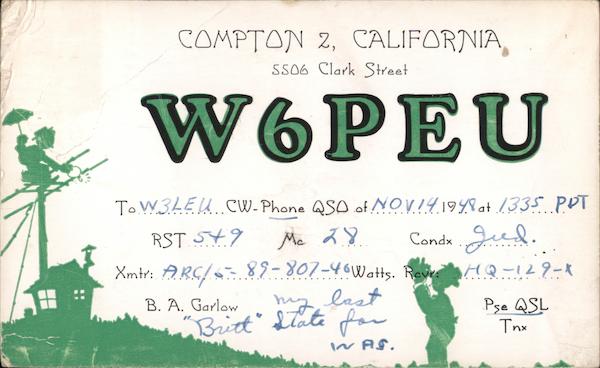 COMPTON 2, CALIFORNIA
5506 Clark Street
W6PEU
To W3LEU CW-Phone QSO of NOV 14 1948 at 1335 PDT
RST 549 Mc 28 Condx Gud.
Xmtr: ARC/5-89-807-40 Watts. Rcvr: HQ-129-X
B. A. Garlow my last Pse QSL
"Britt" State for Tnx
WAS.